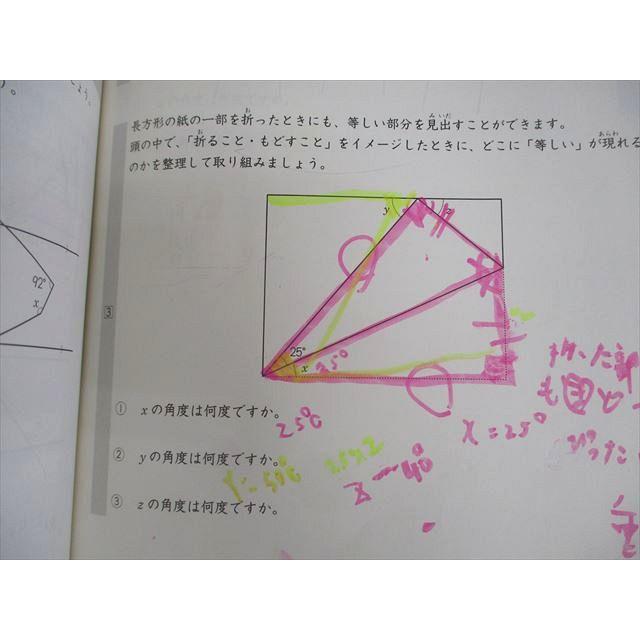 長方形の紙の一部を折ったときにも、等しい部分を見出すことができます。
頭の中で、「折ること・もどすこと」をイメージしたときに、どこに「等しい」が現れる
のかを整理して取り組みましょう。
92°
x
3
y
25°
x
25°
① xの角度は何度ですか。
25°
x=25°
② yの角度は何度ですか。
25×2
③ zの角度は何度ですか。